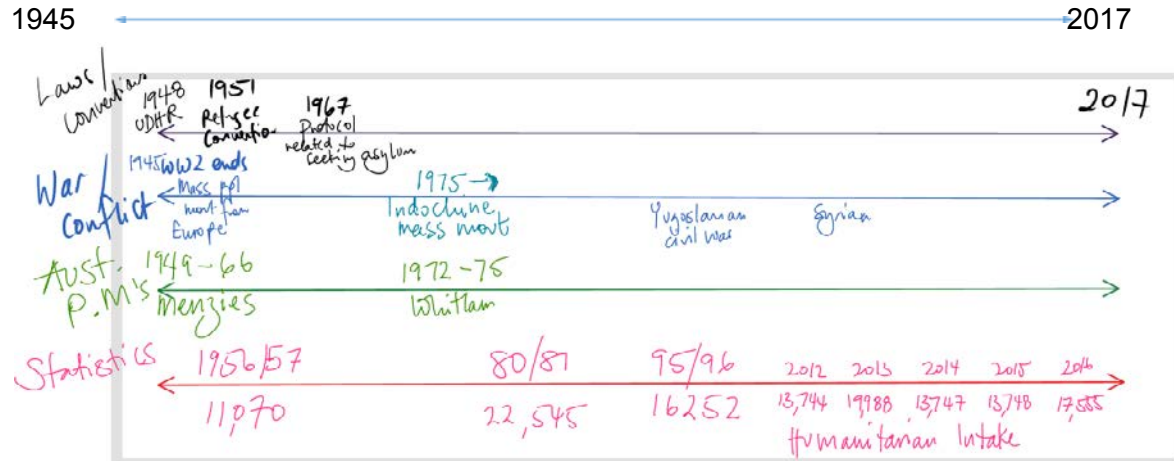 1945 2017
Laws/
Conventions
1948
UDHR
1951
Refugee
Convention
1967
Protocol
related to
seeking asylum
2017
War/
Conflict
1945 WW2 ends
Mass ppl
mov't from
Europe
1975 →
Indochine
mass movt
Yugoslavian
civil war
Syrian
Aust.
P.M's
1949-66
Menzies
1972-75
Whitlam
Statistics
1956/57
11,070
80/81
22,545
95/96
16252
2012 2013 2014 2015 2016
13,744 19,988 13,747 13,748 17,555
Humanitarian Intake